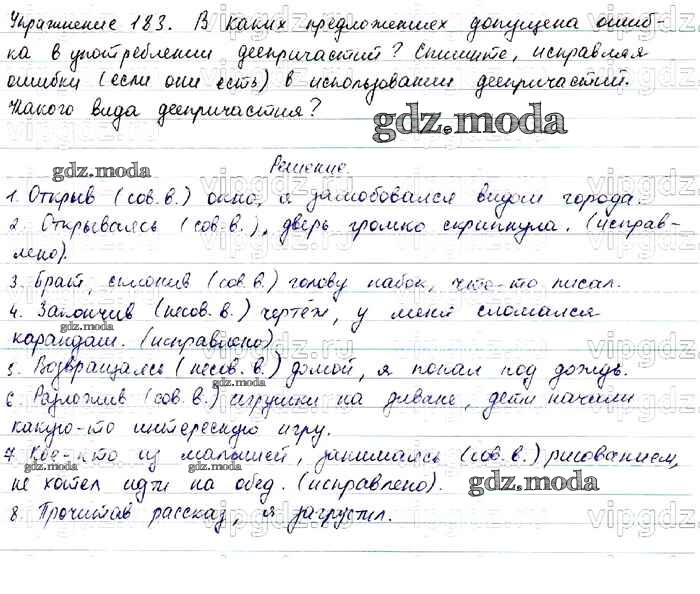 Упражнение 183. В каких предложениях допущена ошиб-
ка в употреблении деепричастий? Спишите, исправляя
ошибки (если они есть) в использовании деепричастий.
Какого вида деепричастия?
gdz.moda
gdz.moda
Решение.
1. Открыв (сов.в.) окно, я залюбовался видом города.
2. Открываясь (сов.в.), дверь громко скрипнула. (исправ-
лено).
3. Брат, склонив (сов.в.) голову набок, что-то писал.
4. Закончив (несов.в.) чертёж, у меня сломался
gdz.moda
карандаш. (исправлено).
5. Возвращаясь (несов.в.) домой, я попал под дождь.
gdz.moda
6. Разложив (сов.в.) игрушки на диване, дети начали
какую-то интересную игру.
7. Кое-кто из малышей, занимаясь (сов.в.) рисованием,
не хотел идти на обед. (исправлено).
gdz.moda
8. Прочитав рассказ, я загрустил.
vipgdz.ru